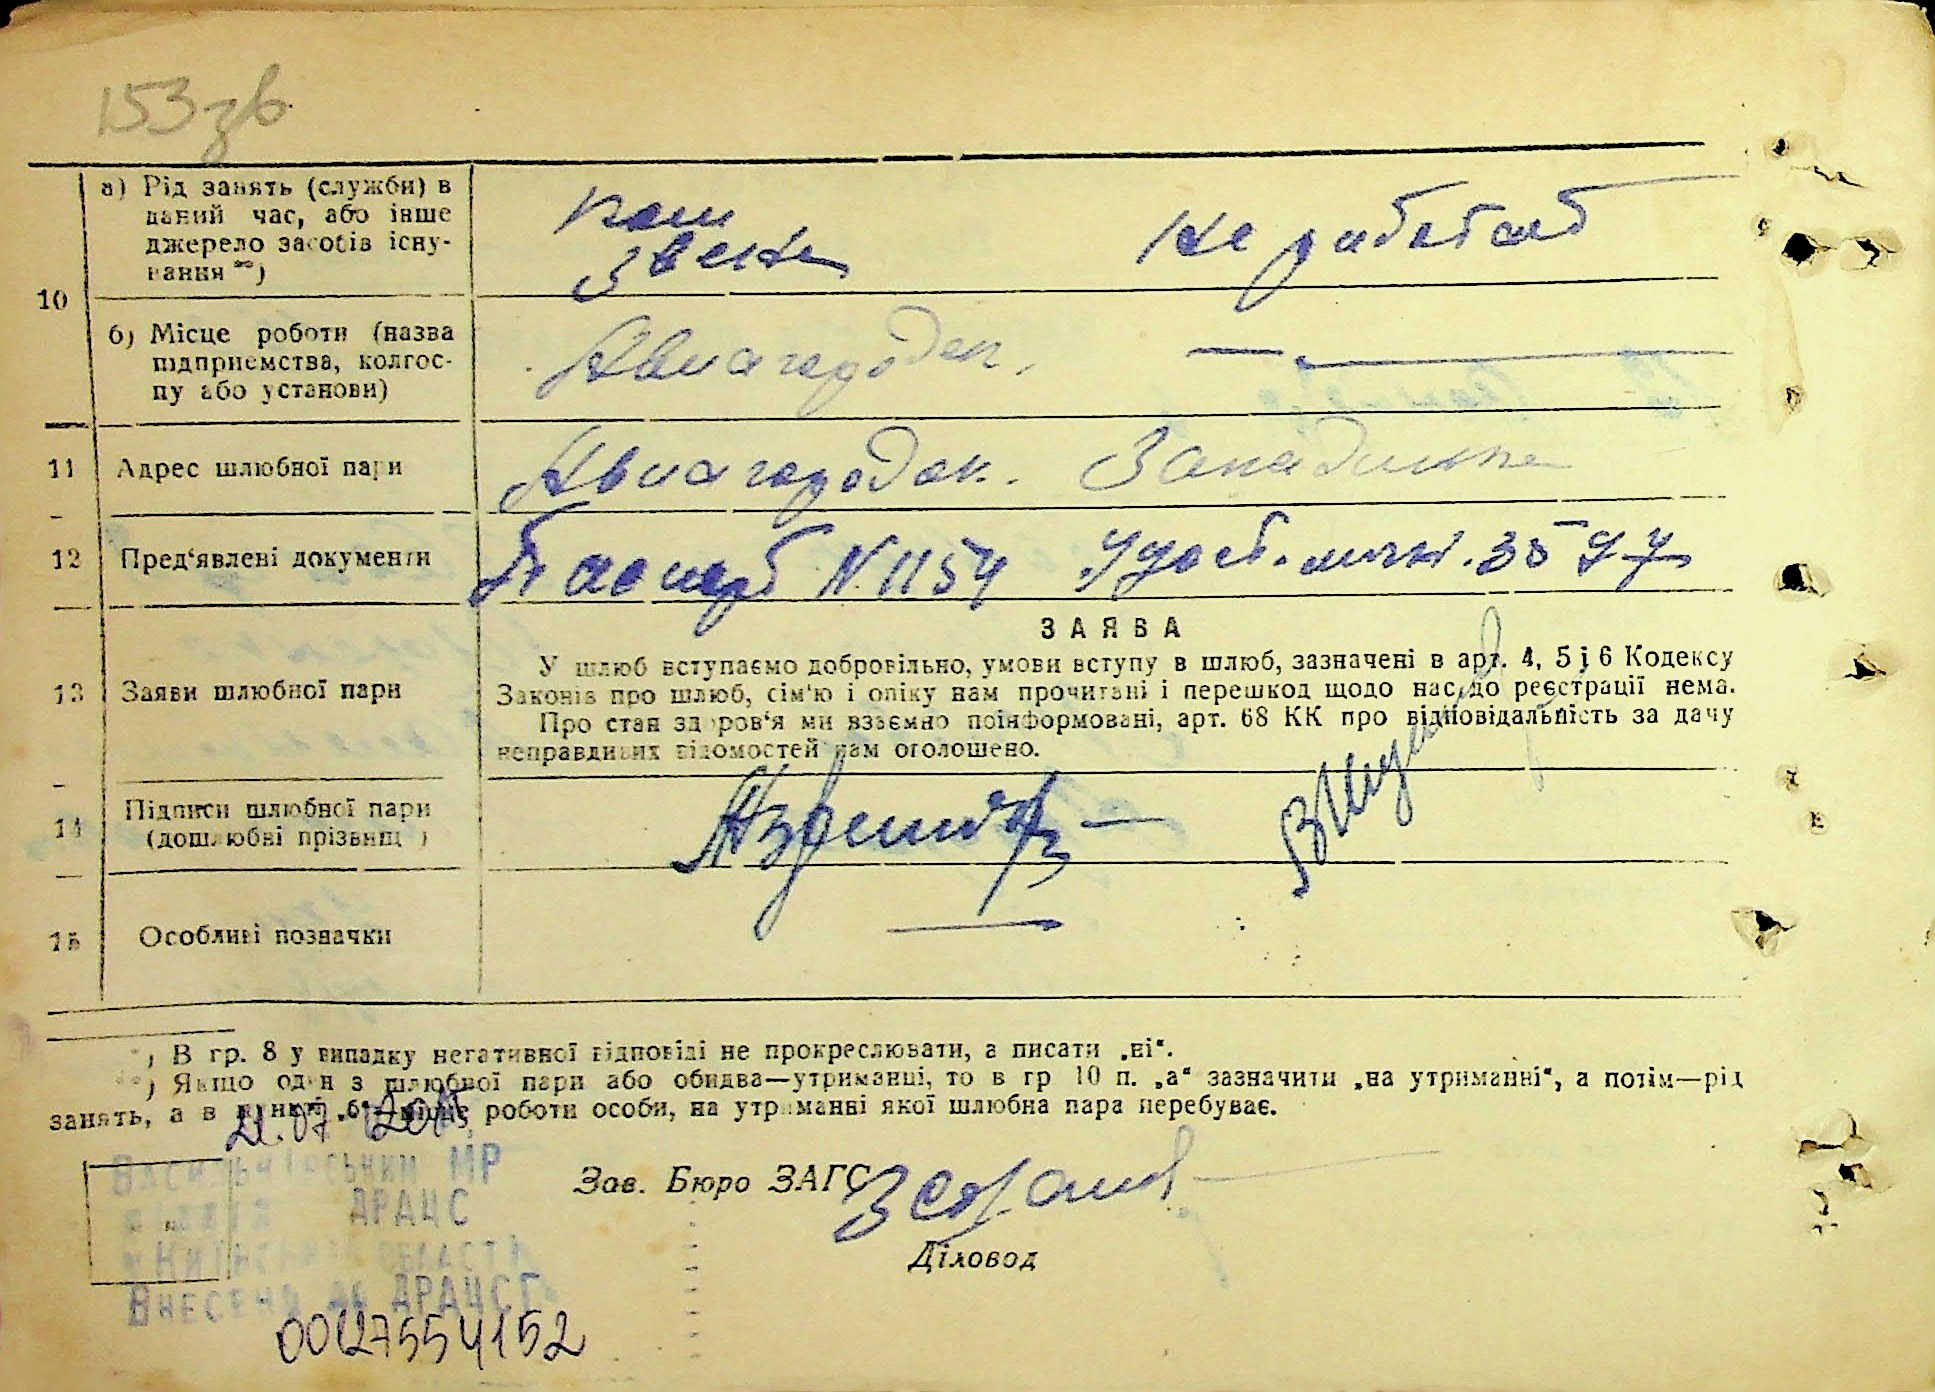 153зв
а) Рід занять (служби) в
даний час, або інше
джерело засобів існу-
вання **)
Ком
Звена
Не работает
10
б) Місце роботи (назва
підприємства, колгос-
пу або установи)
Авиагородок.
—
11 Адрес шлюбної пари
Авиагородок. Западынка
12 Пред'явлені документи
Паспорт N 1154 Удост. личн.
ЗАЯВА
У шлюб вступаємо добровільно, умови вступу в шлюб, зазначені в арт. 4, 5 і 6 Кодексу
13 Заяви шлюбної пари
Законів про шлюб, сім'ю і опіку нам прочитані і перешкод щодо нас до реєстрації нема.
Про стан здоров'я ми взаємно поінформовані, арт. 68 КК про відповідальність за дачу
неправдивих відомостей нам оголошено.
14 Підписи шлюбної пари
(дошлюбні прізвищ )
15 Особливі позначки
*) В гр. 8 у випадку негативної відповіді не прокреслювати, а писати „ні“.
**) Якщо один з шлюбної пари або обидва—утриманці, то в гр 10 п. „а“ зазначити „на утриманні“, а потім—рід
занять, а в пункті „б“—місце роботи особи, на утриманні якої шлюбна пара перебуває.
21.07.
Васильківський МР
відділ ДРАЦС
у Київській області
Внесено до ДРАЦСГ
00127554152
Зав. Бюро ЗАГС
Діловод